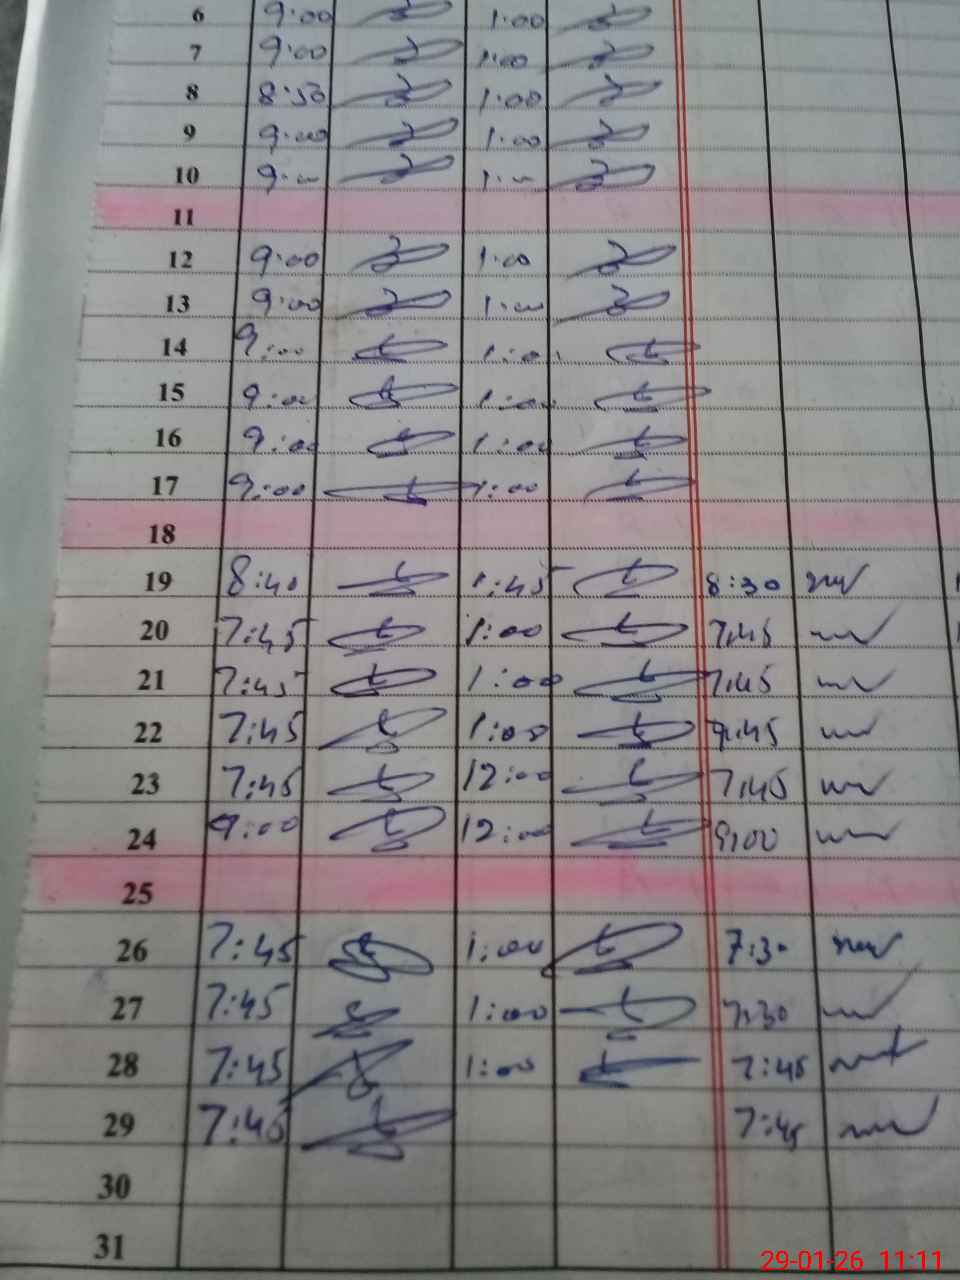 6 9:00 1:00
7 9:00 1:00
8 8:50 1:00
9 9:00 1:00
10 9:00 1:00
11
12 9:00 1:00
13 9:00 1:00
14 9:00 1:00
15 9:00 1:00
16 9:00 1:00
17 9:00 1:00
18
19 8:40 1:45 8:30
20 7:45 1:00 7:45
21 7:45 1:00 7:45
22 7:45 1:00
23 7:45 12:00 7:45
24 9:00 12:00 9:00
25
26 7:45 1:00 7:30
27 7:45 1:00 7:30
28 7:45 1:00 7:45
29 7:45 7:45
30
31
29-01-26 11:11